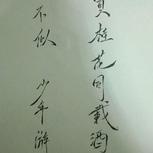 买桂花同载酒
不似
少年游